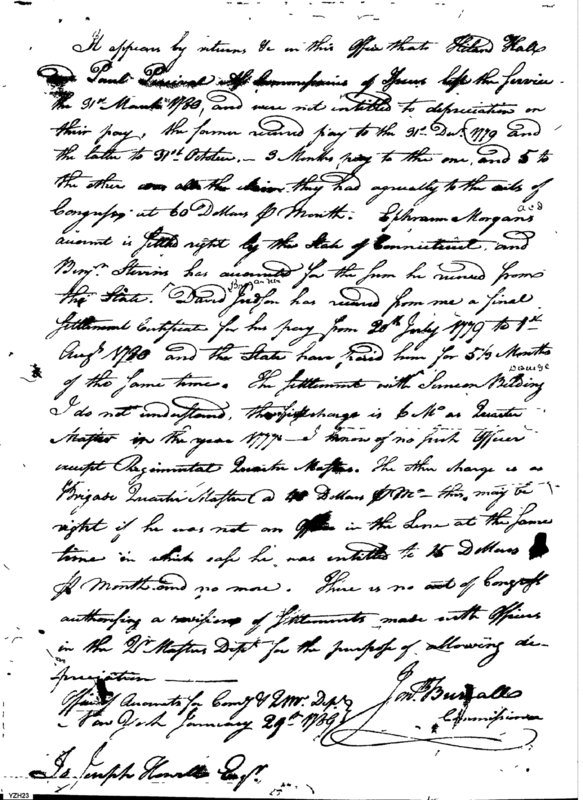 It appears by returns &c in this Office that Hiland Hall
Paul Percival Commissaries of Issues left the Service
the 31st March 1780 and were not entitled to depreciation on
their pay, the former received pay to the 31st Decr. 1779 and
the latter to 31st October, - 3 Months pay to the one, and 5 to
the other they had agreeably to the acts of
Congress at 60 Dollars ⅌ Month. Ephraim Morgans
account is settled right by the State of Connecticut, and
Benjn. Stevens has accounted for the sum he received from
the State. David Judson has received from me a final
Settlement Certificate for his pay from 20th July 1779 to 1st
Augt. 1780 and the State have paid him for 5⅓ Months
of the same time. The settlement with Simeon Belding
I do not understand, the first charge is 6 Mo. as Quarter
Master in the year 1777 - I know of no such Officer
except Regimental Quarter Masters. The other charge is as
Brigade Quarter Master @ Dollars ⅌ Mo - this may be
right if he was not an Officer in the Line at the same
time in which case he was entitled to Dollars
⅌ Month and no more. There is no act of Congress
authorising a revision of Settlements made with Officers
in the Qr. Masters Dept. for the purpose of allowing de-
preciation
Office of Accounts for Comy. & Q Mr. Dept.
New York January 29th 1789
Jona. Burrall
Commissioner
To Joseph Howell Esqr.
YZH23